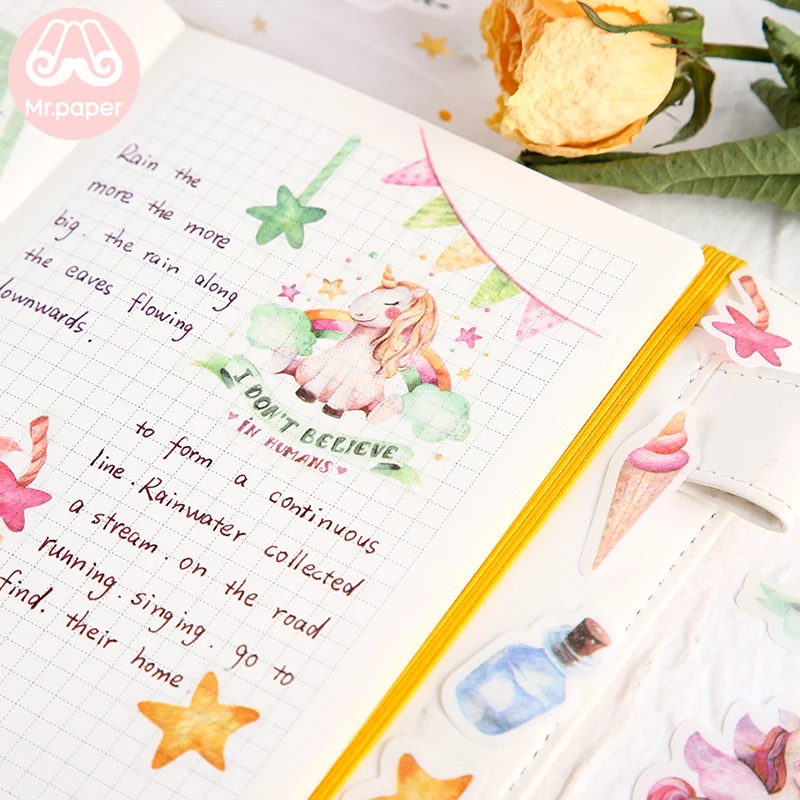 Mr.paper
Rain the
more the more
big. the rain along
the eaves flowing
downwards.
I DON'T BELIEVE
IN HUMANS
to form a continuous
line. Rainwater collected
a stream. on the road
running. singing. go to
find. their home